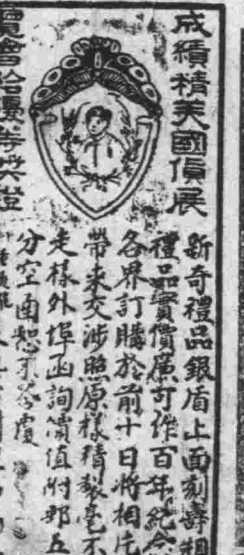 成績精美國貨展
覽會給優等獎證
新奇禮品銀盾上面刻壽相
禮品實價廉可作百年紀念
各界訂購於前十日將相片
帶來交涉照原樣精製毫不
走樣外埠函詢價值附郵五
分空函恕不答覆